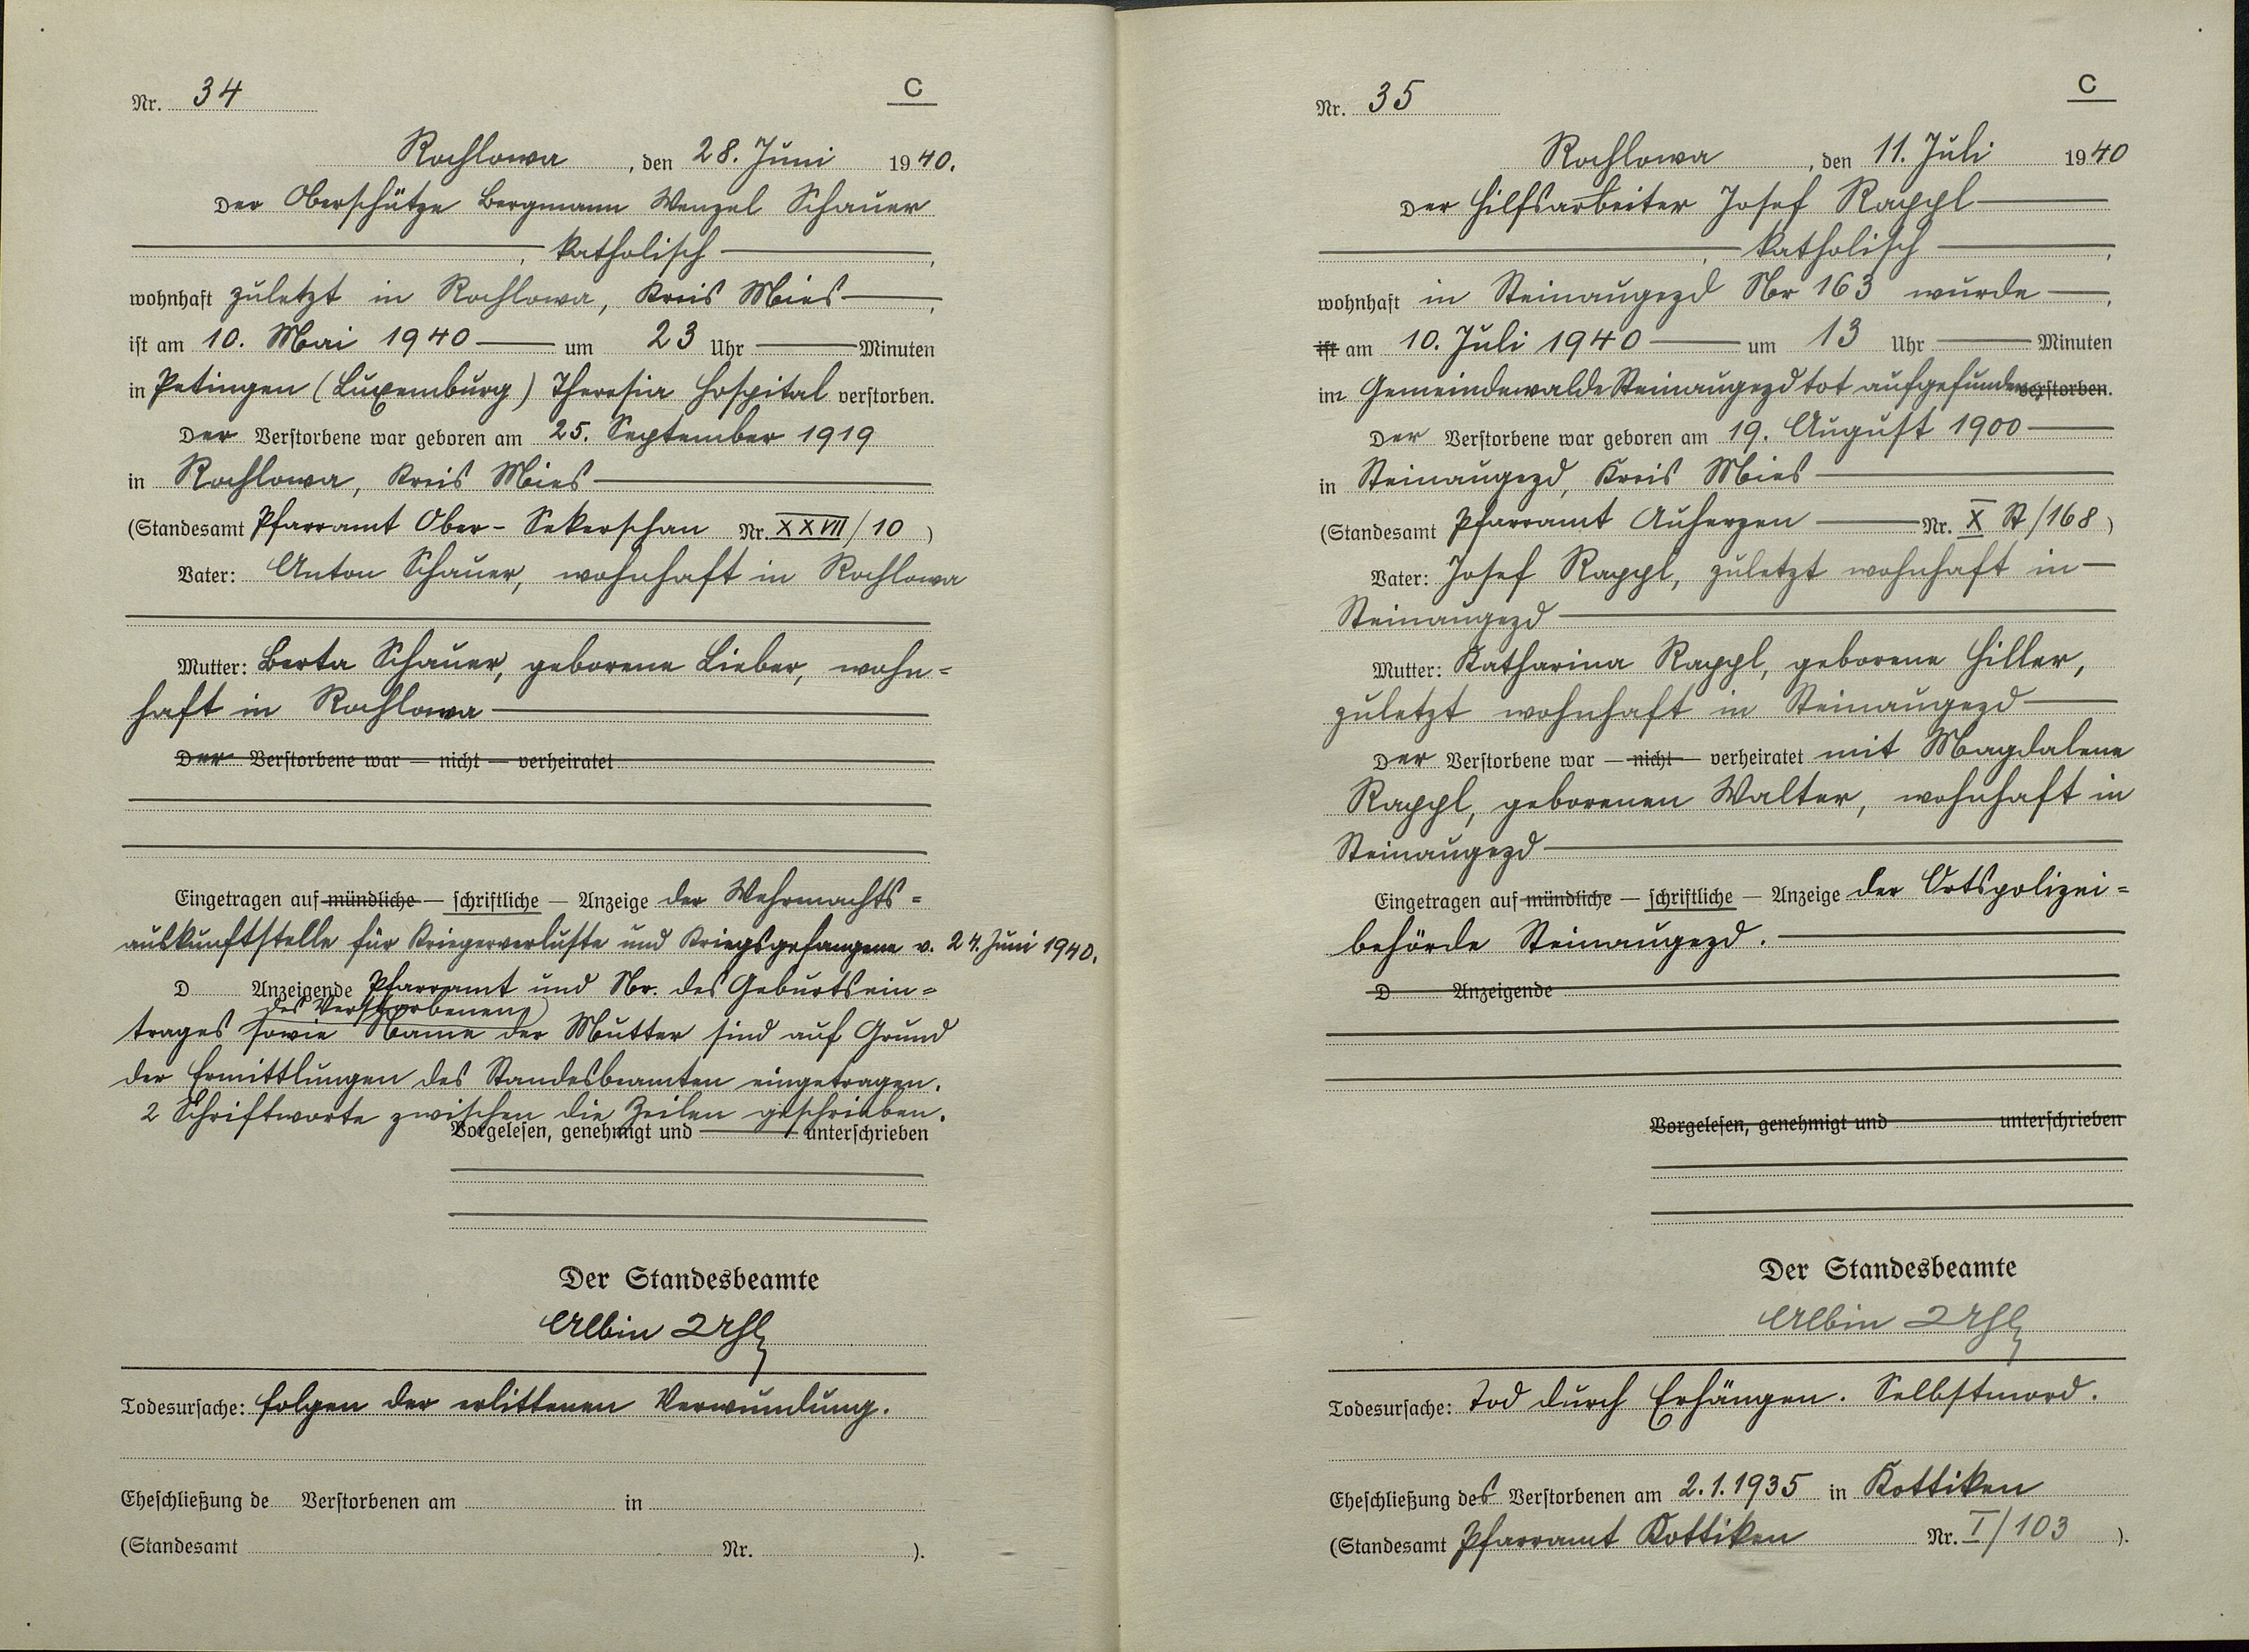 Nr. 34
C
Rochlowa, den 28. Juni 1940.
Der Oberschütze Bergmann Wenzel Schauer
, katholisch ,
wohnhaft zuletzt in Rochlowa, Kreis Mies ,
ist am 10. Mai 1940 — um 23 Uhr — Minuten
in Petingen (Luxemburg) Theresia Hospital verstorben.
Der Verstorbene war geboren am 25. September 1919
in Rochlowa, Kreis Mies
(Standesamt Pfarramt Ober-Sekerschan Nr. XXVII/10)
Vater: Anton Schauer, wohnhaft in Rochlowa
Mutter: Berta Schauer, geborene Lieber, wohn=
haft in Rochlowa
Der Verstorbene war — nicht — verheiratet
Eingetragen auf mündliche — schriftliche — Anzeige der Wehrmachts=
auskunftstelle für Kriegerverluste und Kriegsgefangene v. 24. Juni 1940.
D Anzeigende Pfarramt und Nr. des Geburtsein=
des Verstorbenen
trages sowie Name der Mutter sind auf Grund
der Ermittlungen des Standesbeamten eingetragen.
2 Schriftworte zwischen die Zeilen geschrieben.
Vorgelesen, genehmigt und — unterschrieben
Der Standesbeamte
Albin
Todesursache: Folgen der erlittenen Verwundung.
Eheschließung de Verstorbenen am in
(Standesamt Nr. ).
Nr. 35
C
Rochlowa, den 11. Juli 1940
Der Hilfsarbeiter Josef Rappl
, katholisch ,
wohnhaft in Steinaugezd Nr 163 wurde — ,
ist am 10. Juli 1940 — um 13 Uhr — Minuten
im Gemeindewalde Steinaugezd tot aufgefunden verstorben.
Der Verstorbene war geboren am 19. August 1900
in Steinaugezd, Kreis Mies
(Standesamt Pfarramt Auherzen — Nr. X St/168)
Vater: Josef Rappl, zuletzt wohnhaft in
Steinaugezd
Mutter: Katharina Rappl, geborene Hiller,
zuletzt wohnhaft in Steinaugezd
Der Verstorbene war — nicht — verheiratet mit Magdalene
Rappl, geborenen Walter, wohnhaft in
Steinaugezd
Eingetragen auf mündliche — schriftliche — Anzeige der Ortspolizei=
behörde Steinaugezd.
D Anzeigende
Vorgelesen, genehmigt und unterschrieben
Der Standesbeamte
Albin
Todesursache: Tod durch Erhängen. Selbstmord.
Eheschließung des Verstorbenen am 2.1.1935 in Kottiken
(Standesamt Pfarramt Kottiken Nr. I/103 ).